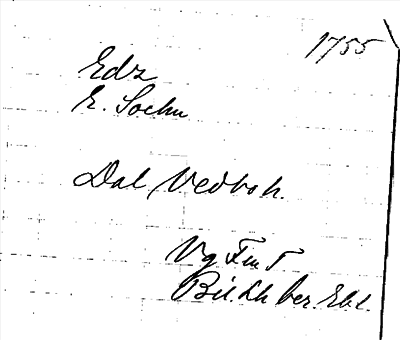 1755
Edz
E. Sochn
Dal Vedboh.
Vg Fm T
Bil. Lh ber. Ebl.